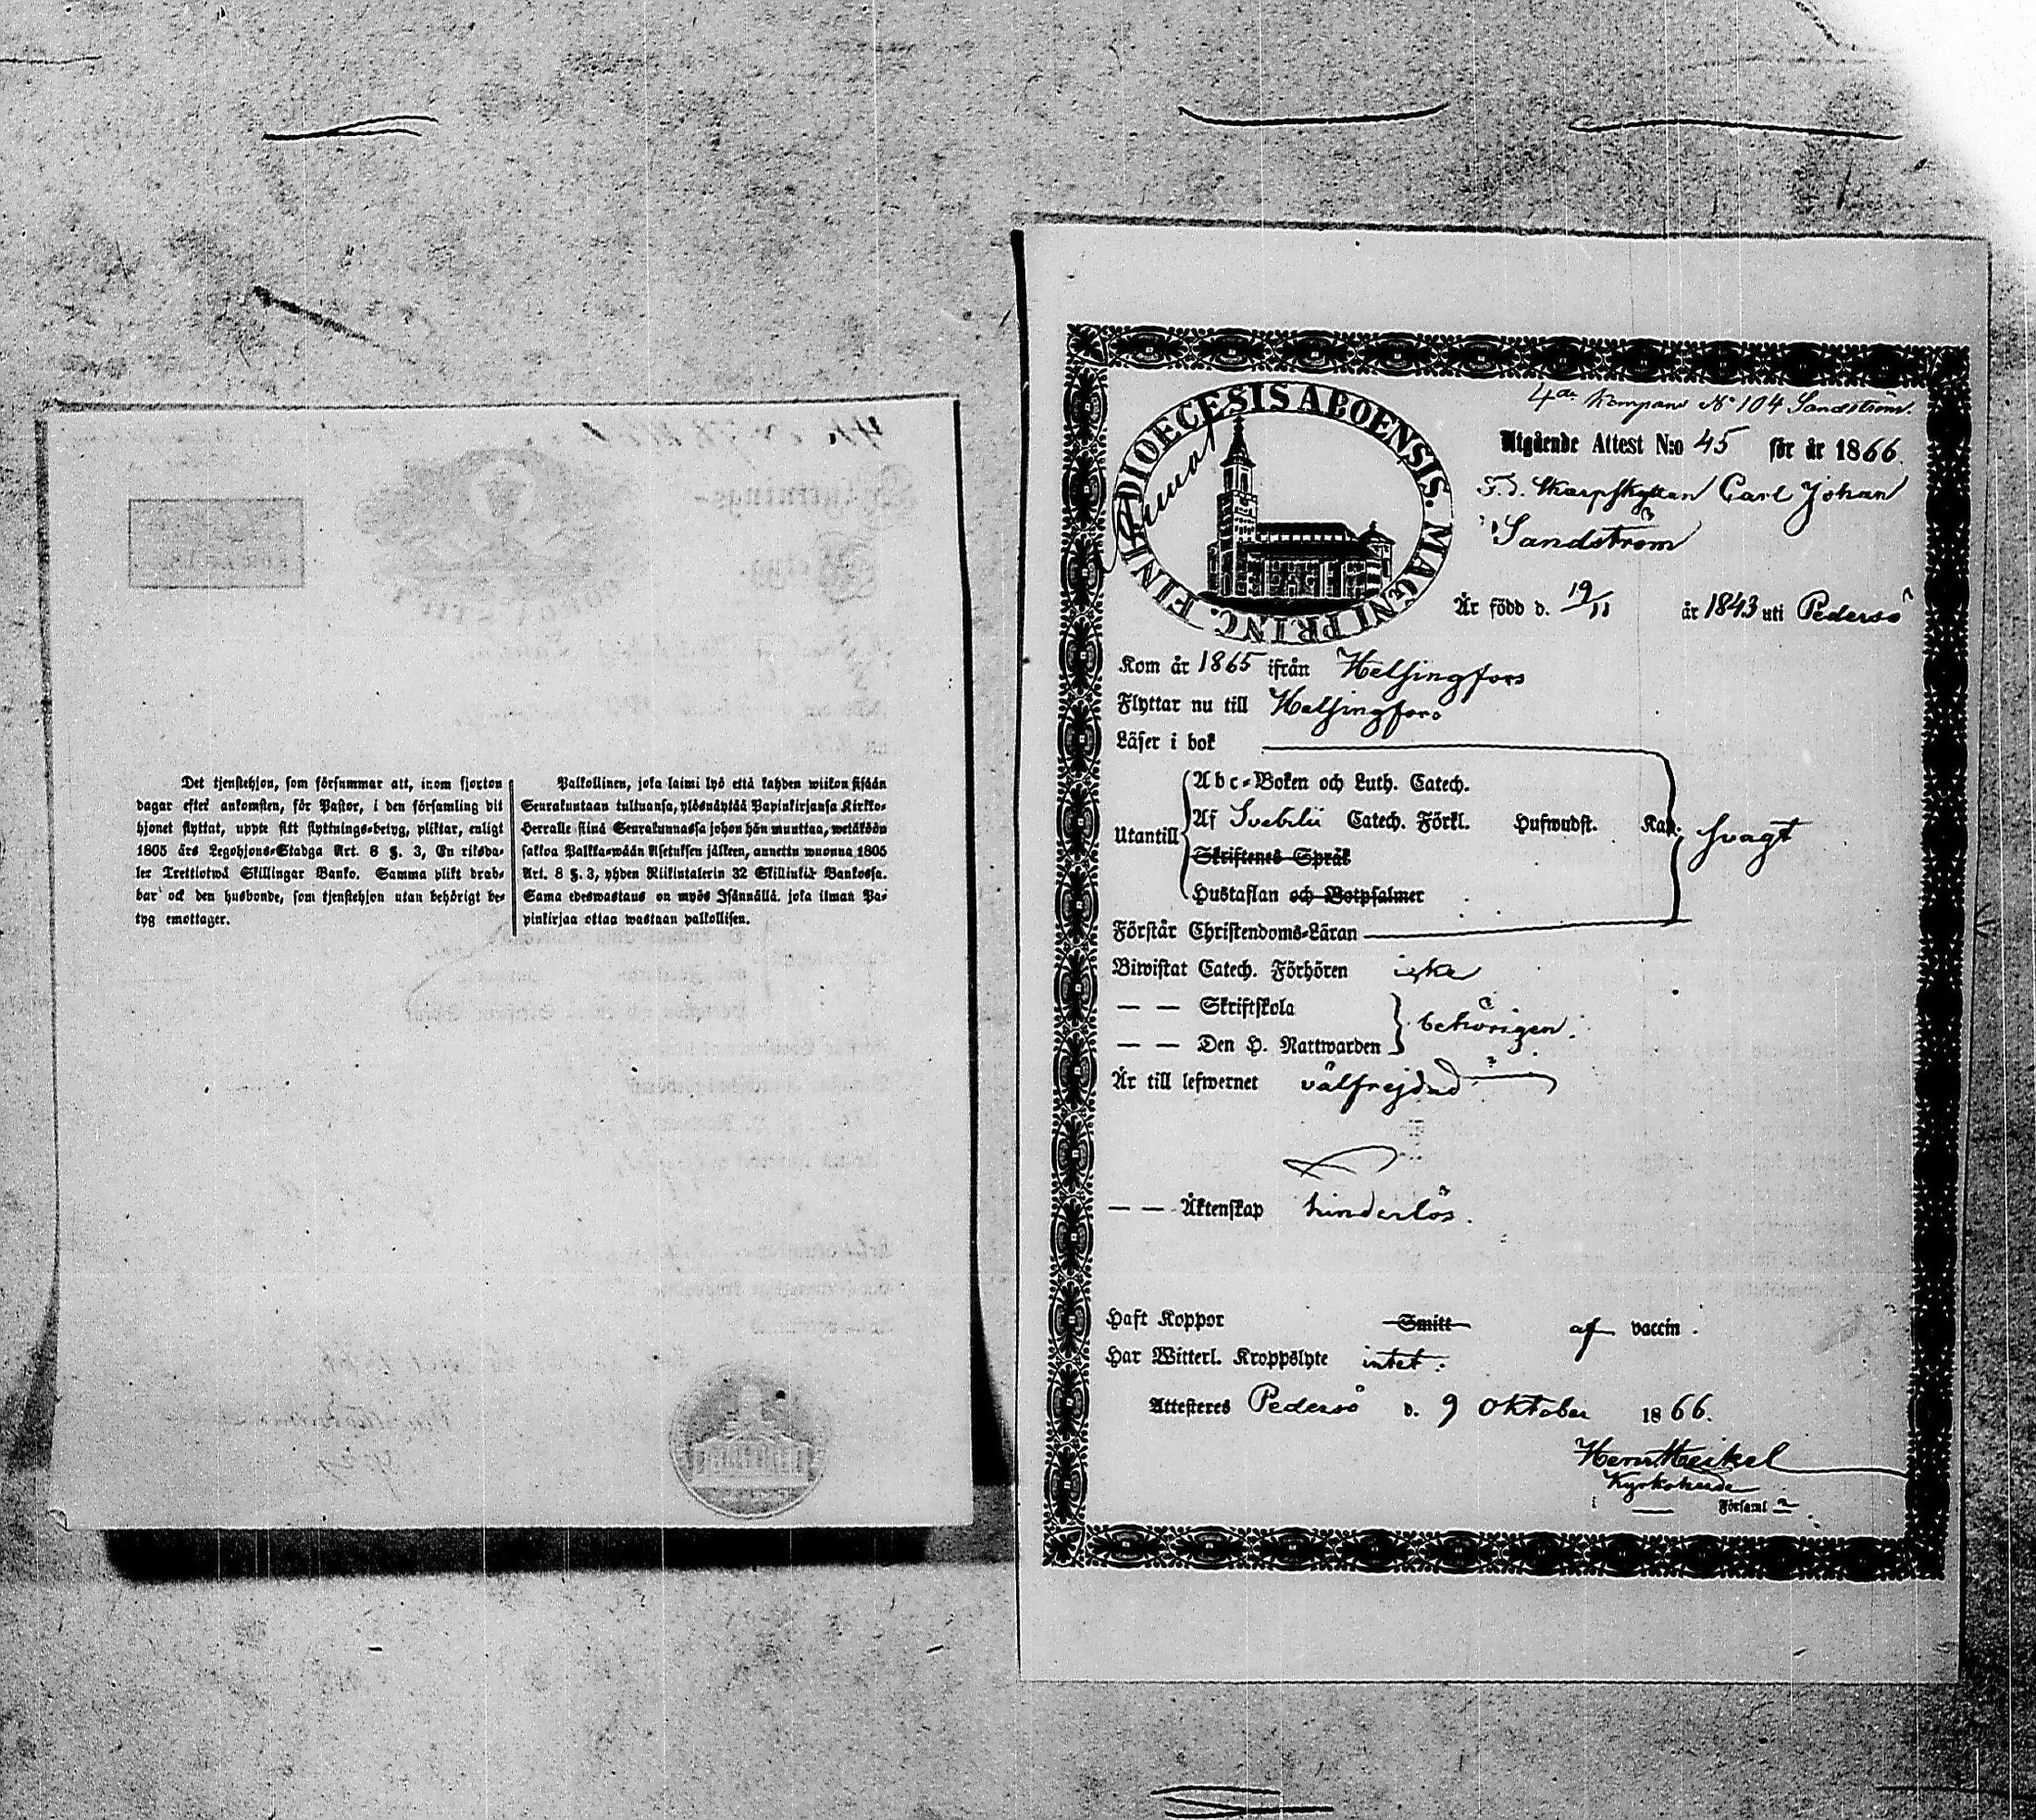 Det tjenstehjon, som försummar att, inom fjorton
dagar efter ankomsten, för Pastor, i den församling dit
hjonet flyttat, uppte sitt flyttnings-betyg, pliktar, enligt
1805 års Legohjons-Stadga Art. 8 §. 3, En riksda-
ler Trettiotwå Skillingar Banko. Samma plikt drab-
bar ock den husbonde, som tjenstehjon utan behörigt be-
tyg emottager.
Palkollinen, joka laimi lyö että kahden wiikon sisään
Seurakuntaan tultuansa, ylösnäytää Papinkirjansa Kirkko-
Herralle siinä Seurakunnassa johon hän muuttaa, wetäköön
sakkoa Palkka-wään Asetuksen jälkeen, annettu wuonna 1805
Art. 8 §. 3, yhden Riikintalerin 32 Skillinkiä Bankossa.
Sama edeswastaus on myös Isännällä. joka ilman Pa-
pinkirjaa ottaa wastaan palkollisen.
4de Kompani No 104 Sandström.
DIOECESIS ABOENSIS. MAGNI PRINC. FINL.
Utgående Attest N:o 45 för år 1866.
F. d. Skarpskytten Carl Johan
Sandström
Är född d. 19/11 år 1843 uti Pedersö
Kom år 1865 ifrån Helsingfors
Flyttar nu till Helsingfors
Läser i bok
Utantill
Abc-Boken och Luth. Catech.
Af Svebilii Catech. Förkl. Hufwudst. Kap.
Skriftenes Språk
Hustaflan och Botpsalmer
svagt
Förstår Christendoms-Läran
Biwistat Catech. Förhören icke
— — Skriftskola
— — Den H. Nattwarden
behörigen.
Är till lefwernet välfrejdad
— — Äktenskap hinderlös.
Haft Koppor Smitt af vaccin.
Har Witterl. Kroppslyte intet.
Attesteres Pedersö d. 9 Oktober 1866.
Herm Heikel
Kyrkoherde
Församl